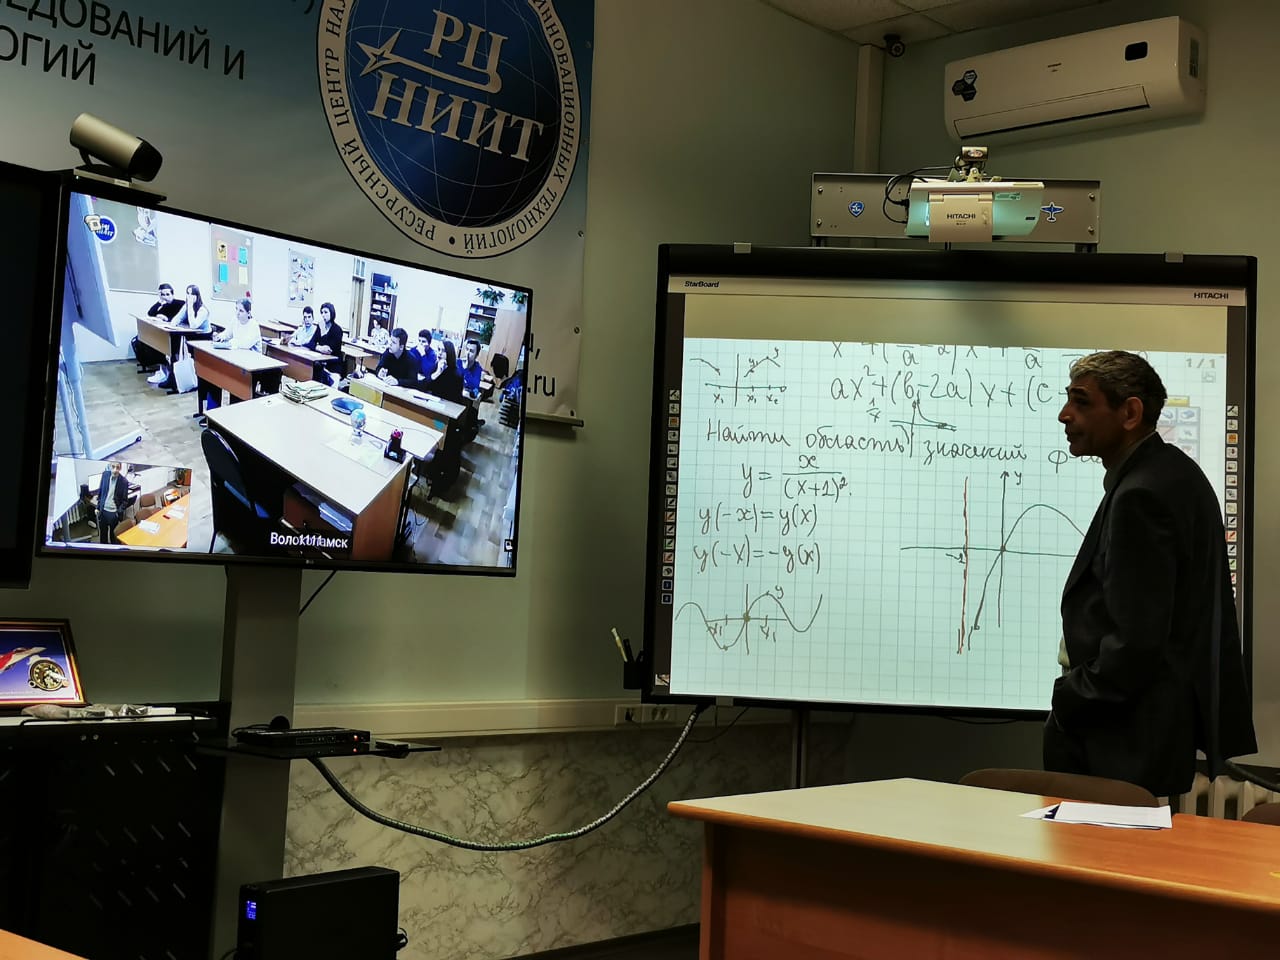 ЕДОВАНИЙ И
ОГИЙ
РЦ
НИИТ
РЕСУРСНЫЙ ЦЕНТР
ИННОВАЦИОННЫХ ТЕХНОЛОГИЙ
.ru
Волоколамск
HITACHI
StarBoard
HITACHI
1 / 1
ax²+(b-2a)x+(c
Найти область значений ф
y = x/(x+1)².
y(-x)=y(x)
y(-x)=-y(x)
y
x₁
x₁ x₂
y
y
x₁
x₁